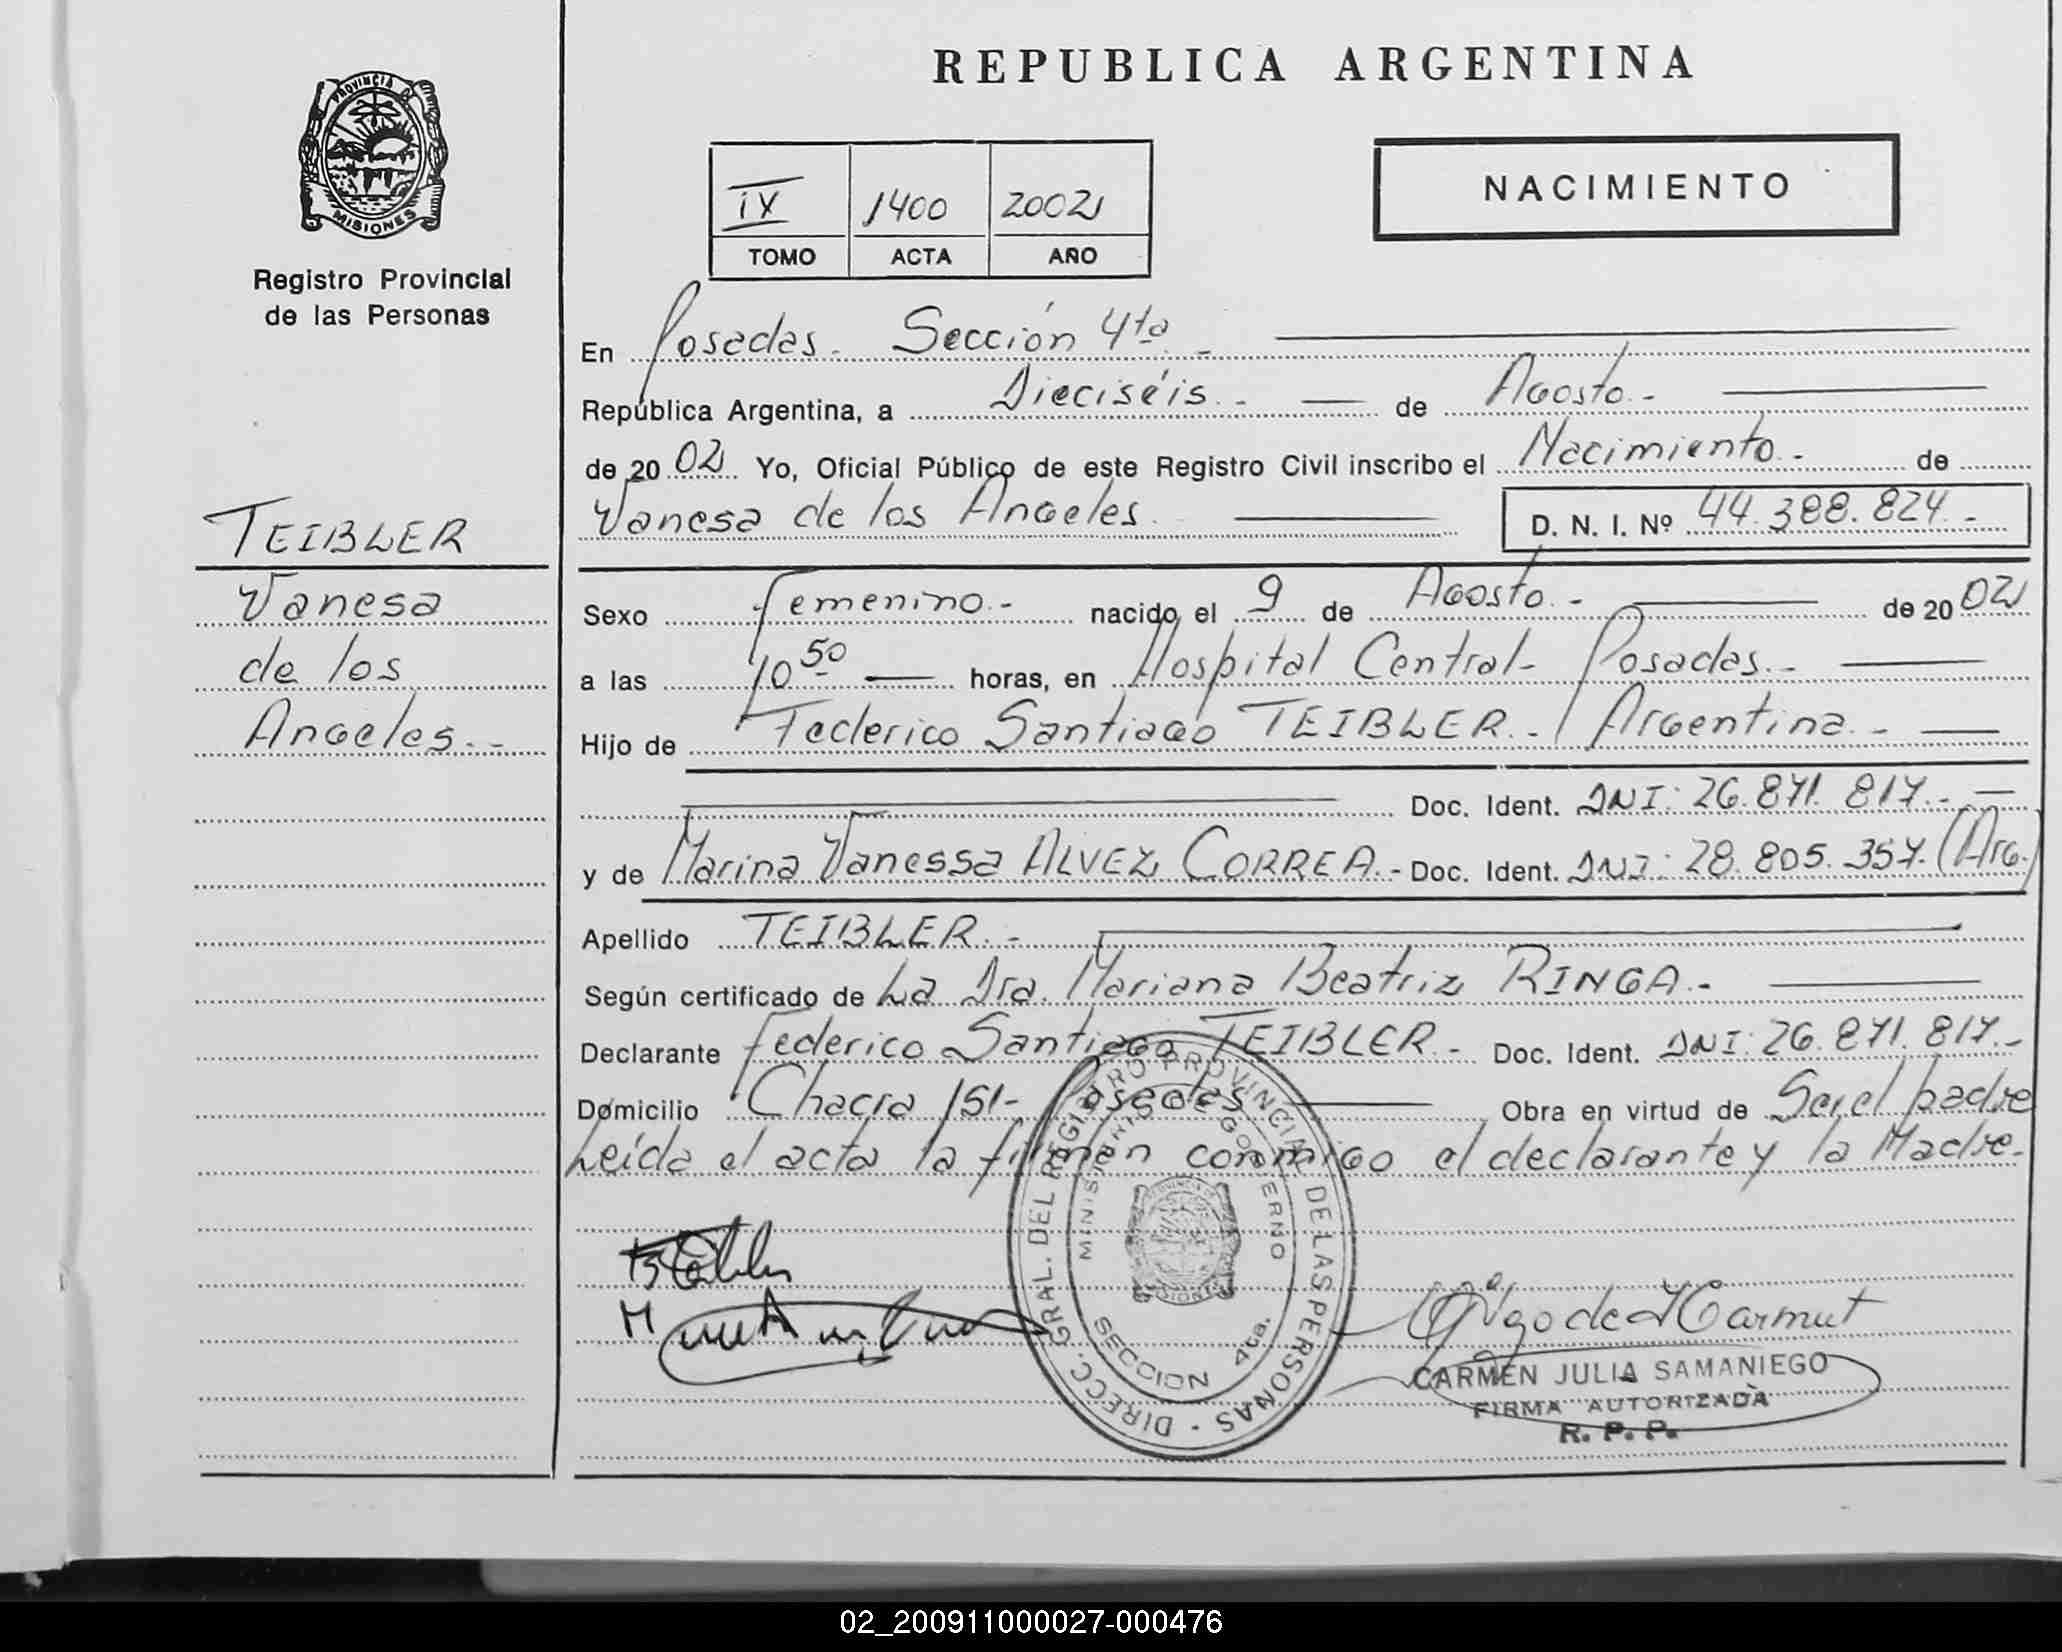 REPUBLICA ARGENTINA
PROVINCIA DE
MISIONES
Registro Provincial
de las Personas
IX 1400 2002
TOMO ACTA AÑO
NACIMIENTO
En Posadas. Sección 4ta -
República Argentina, a Dieciséis.- de Agosto.-
de 2002 Yo, Oficial Público de este Registro Civil inscribo el Nacimiento.- de
Vanesa de los Angeles. D. N. I. Nº 44.388.824.-
TEIBLER
Vanesa
de los
Angeles.-
Sexo Femenino.- nacido el 9 de Agosto.- de 2002
a las 10 50 horas, en Hospital Central- Posadas.-
Hijo de Federico Santiago TEIBLER.- / Argentina.-
Doc. Ident. DNI: 26.871.817.-
y de Marina Vanessa ALVEZ CORREA.- Doc. Ident. DNI: 28.805.357. (Arg.)
Apellido TEIBLER.-
Según certificado de La Dra. Mariana Beatriz RINGA.-
Declarante Federico Santiago TEIBLER.- Doc. Ident. DNI: 26.871.817.-
Domicilio Chacra 151- Posadas Obra en virtud de Ser el padre
Leída el acta la firman conmigo el declarante y la Madre.
DIRECC. GRAL. DEL REGISTRO PROVINCIAL DE LAS PERSONAS -
MINISTERIO DE GOBIERNO
SECCION 4ta.
CARMEN JULIA SAMANIEGO
FIRMA AUTORIZADA
R. P. P.
02_200911000027-000476